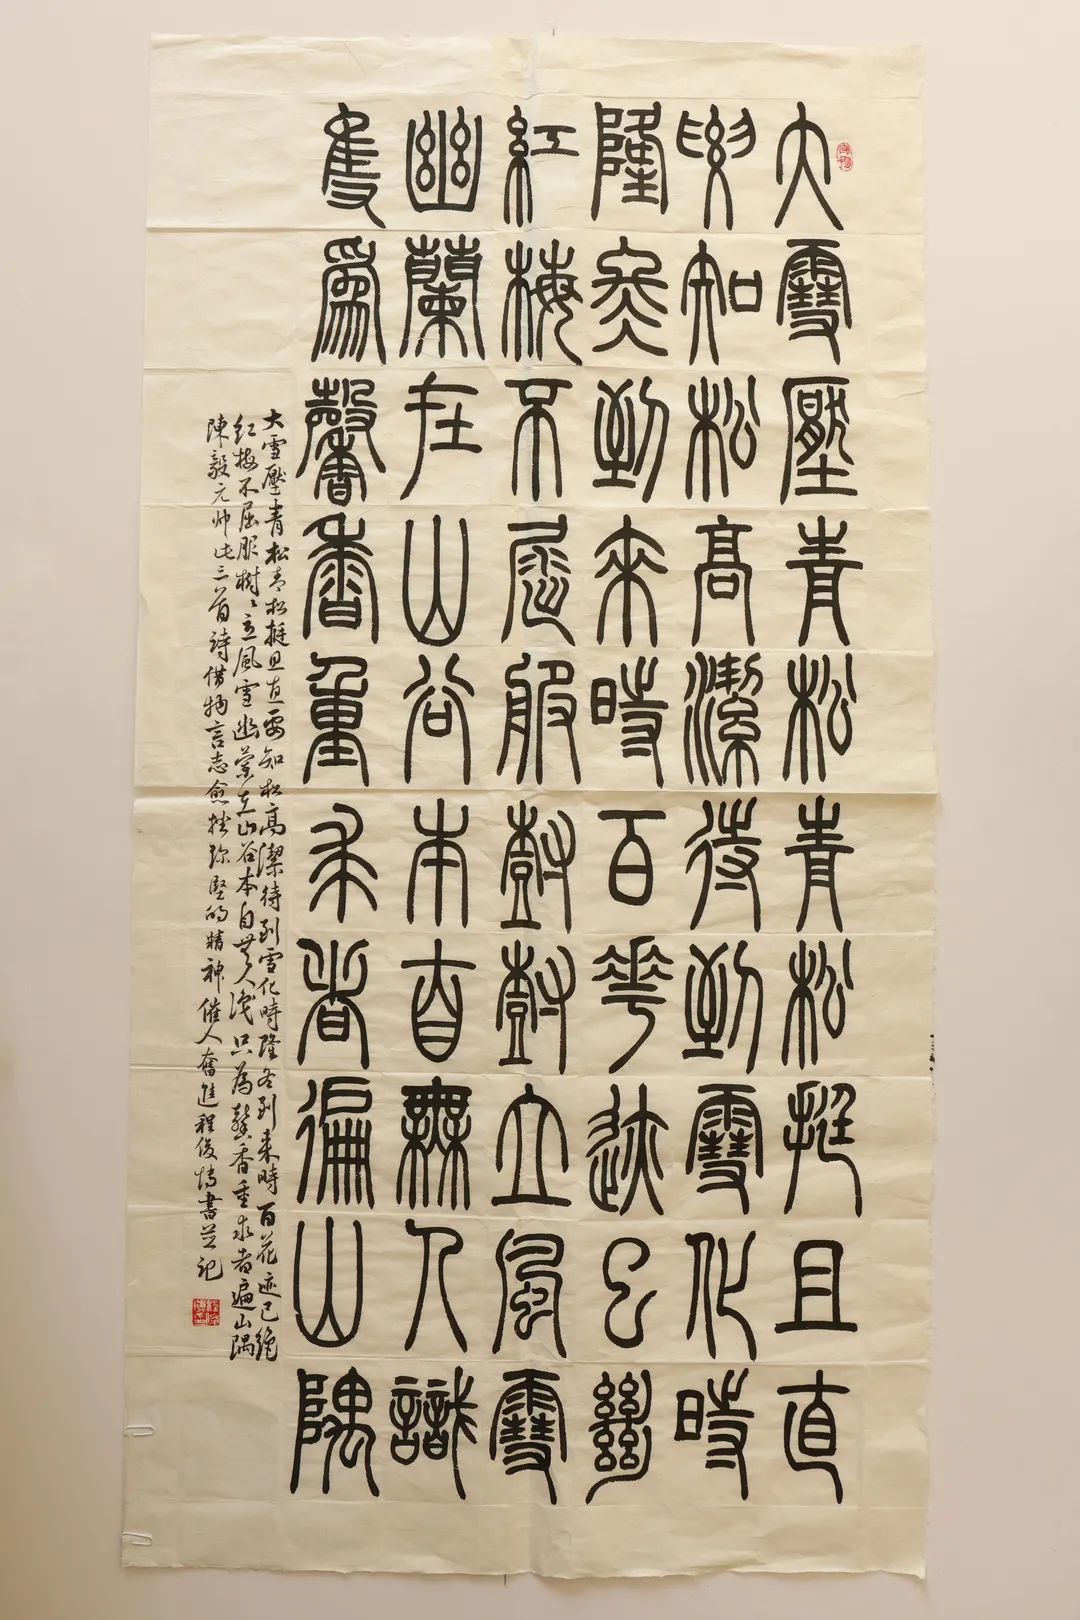 大雪壓青松青松挺且直
要知松高潔待到雪化時
隆冬到來時百花迹已絕
紅梅不屈服樹樹立風雪
幽蘭在山谷本自無人識
隻為馨香重求者遍山隅
大雪壓青松青松挺且直要知松高潔待到雪化時隆冬到来時百花迹已絕
紅梅不屈服樹々立風雪幽蘭在山谷本自無人識只為馨香重求者遍山隅
陳毅元帅此三首詩借物言志愈挫弥堅的精神催人奮進程俊博書並記